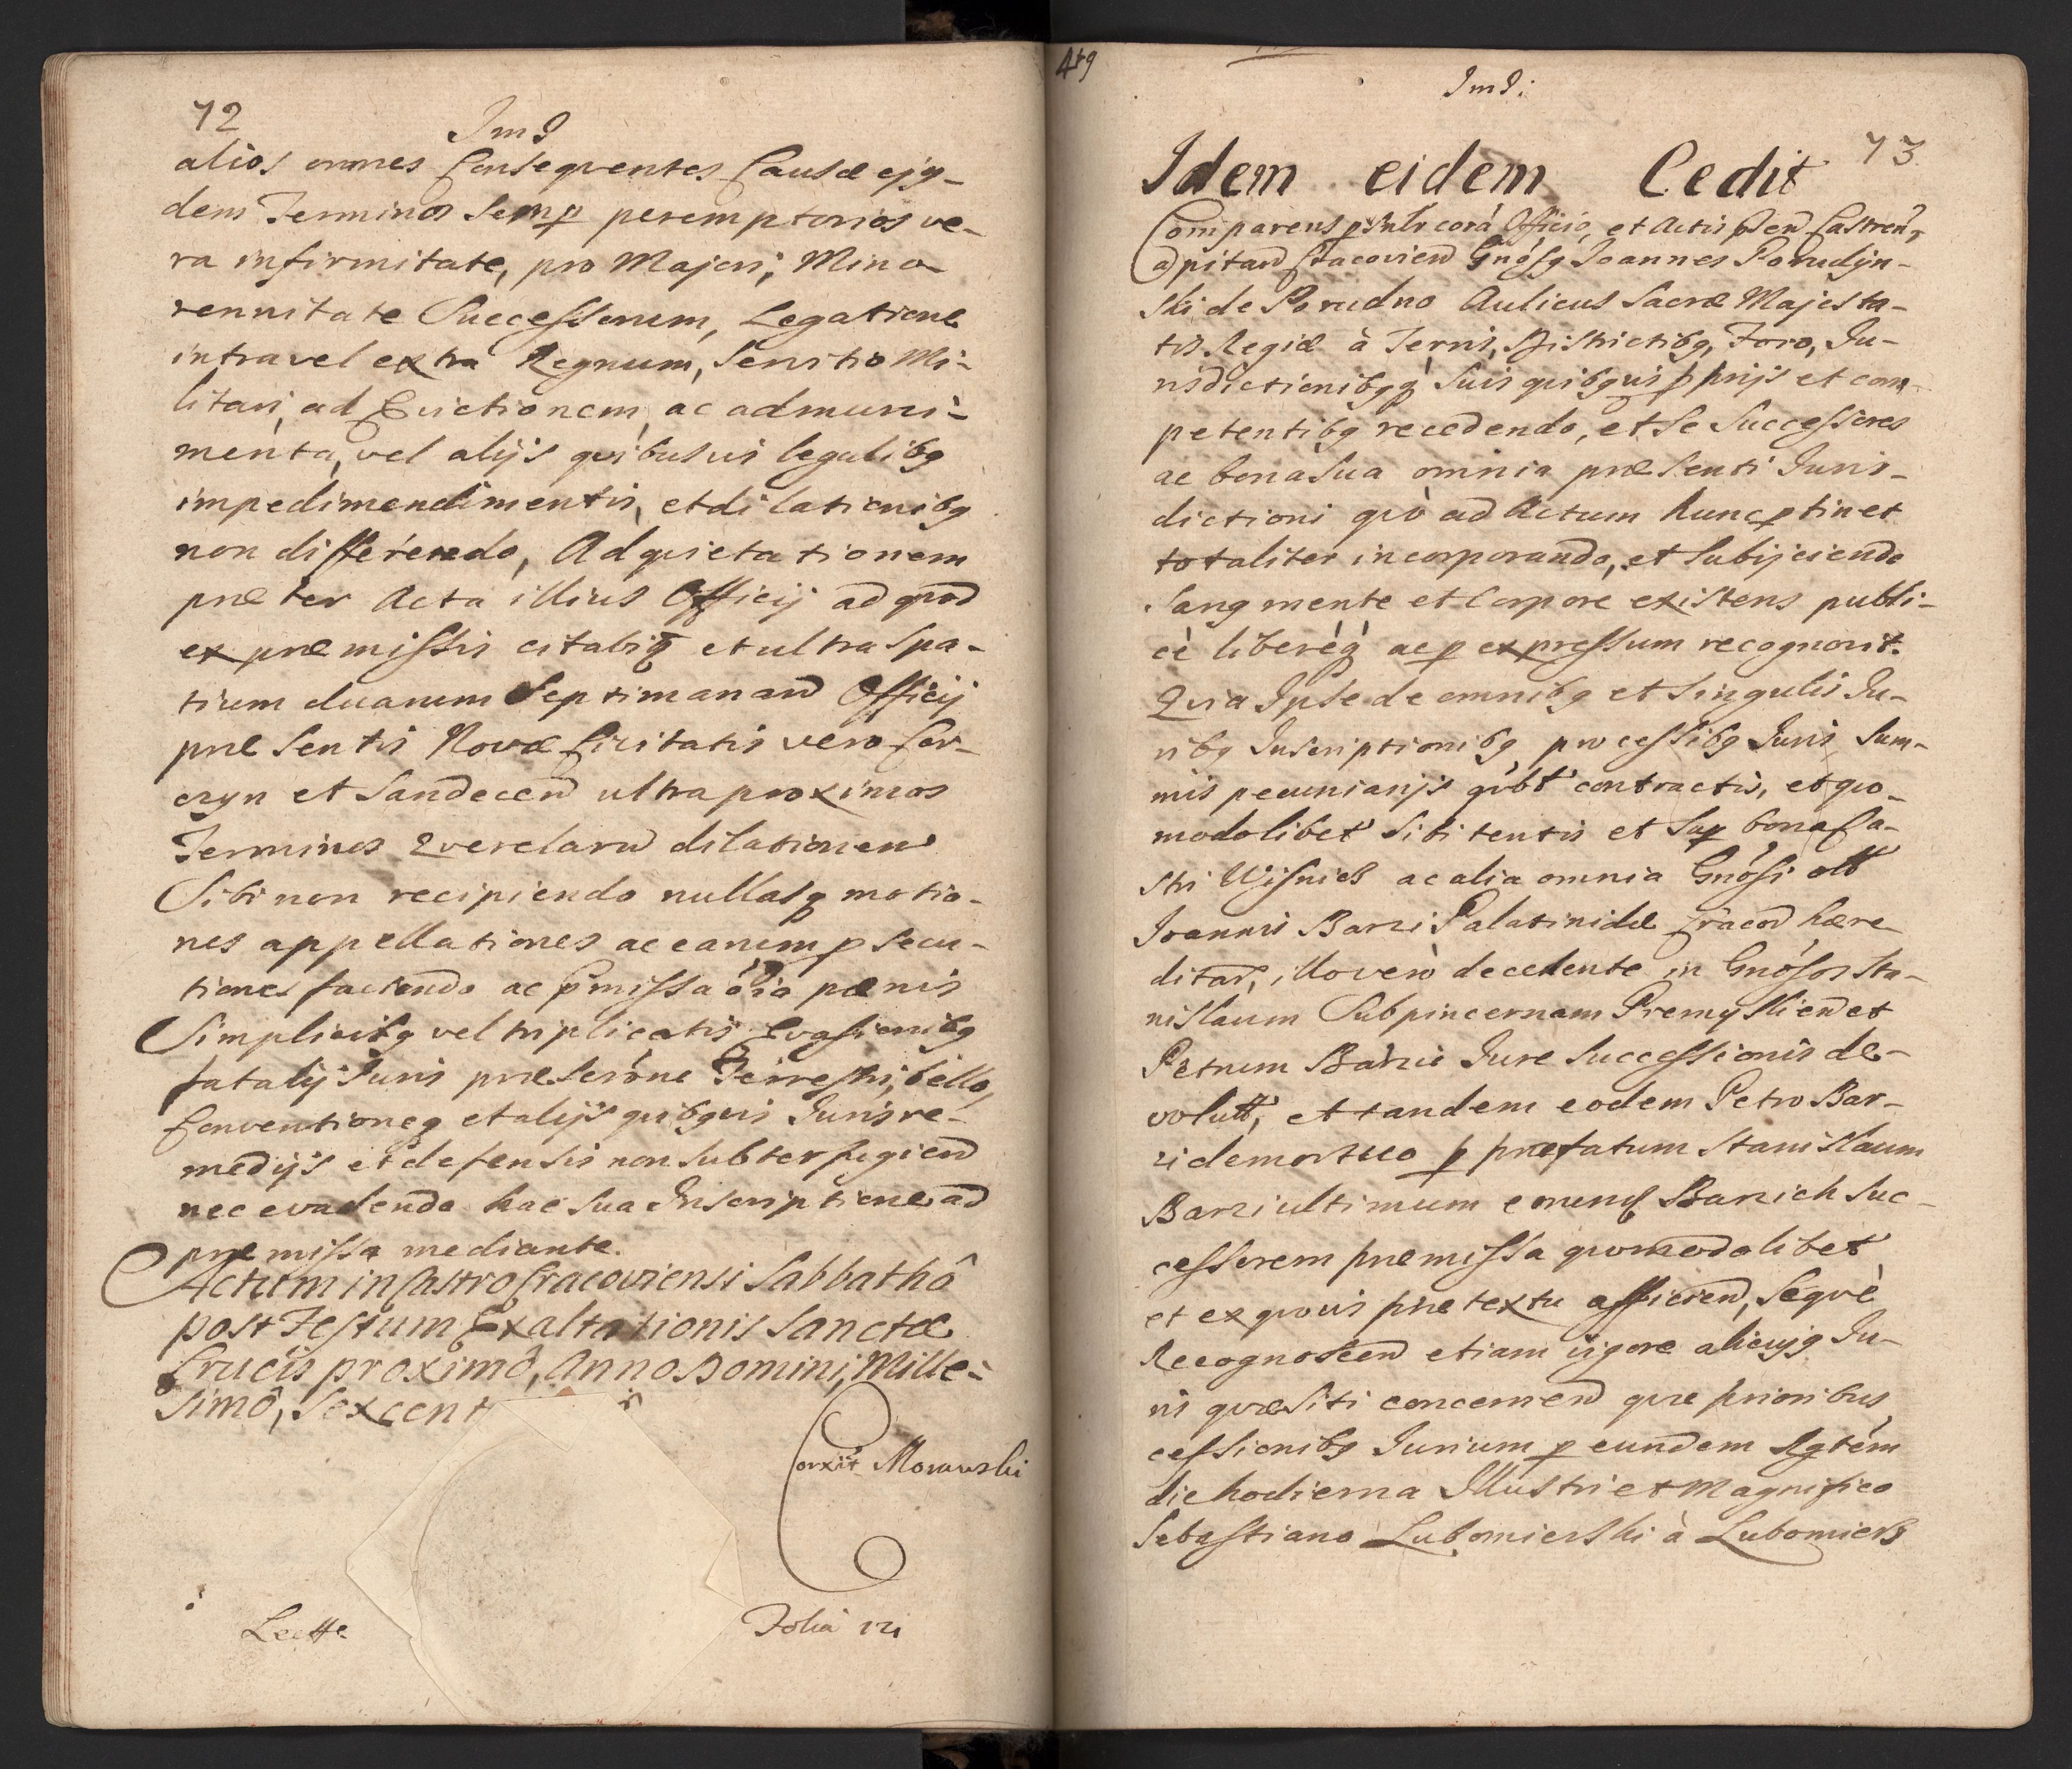 72
ImJ
alios omnes Consequentes Causæ ejq-
dem Terminos Semp peremptorios ve-
ra infirmitate, pro Majori, Mino-
rennitate Successorum, Legatione
intra vel extra Regnum, Servitio Mi-
litari, ad Evictionem, ac admuni-
menta, vel alijs quibusvis legalibq
impedimendimentis, et dilationibq
non differendo, Ad quietationem
præter Acta illius Officij ad quod
ex præmissis citabiꝶ et ultra Spa-
tium duarum Septimanaru Officij
præsentis Novæ Civitatis vero Cor-
czyn et Sandecen ultra proximos
Terminos Querelaru dilationem
Sibi non recipiendo nullasq motio-
nes appellationes ac earum pSecu-
tiones faciendo ac pmissa oia pænis
Simplicibq vel triplicatis Evasionibq
fatalij Juris præscrône Terrestri, bello,
Conventioneq et alijs quibqvis Juris re-
medijs et defensis non Subterfugiend
nec evadendo hac sua Inscriptione ad
præmissa mediante.
Actum in Castro Cracoviensi Sabbathô
post Festum Exaltationis Sanctæ
Crucis proximô, Anno Domini, Mille-
simô, Sexcent
Corxit Morawski
Lectte
Folia
4t9
ImJ:
73
Idem eidem Cedit
Comparens psnlr corà Officio, et Actis pSen Castren,
Capitan Cracovien Gnósq Joannes Porudyn-
ski de Porudno Aulicus Sacræ Majesta-
tis Regiæ à Terris, Districtibq, Foro, Ju-
risdictionibqq Suis quibqvis pprijs et com-
petentibq recedendo, et Se Successores
ac bona Sua omnia præsenti Juris-
dictioni quò ad Actum hunc ptinet
totaliter incorporando, et Subijciendo
Sanq mente et Corpore existens publi-
cè liberèq ac p expressum recognovit.
Quia Ipse de omnibq et Singulis Ju-
ribq Inscriptionibq processibq Juris Sum-
mis pecuniarijs qvbt contractis, et quo-
modolibet Sibi tentis et Sup bona Ca-
stri Wisnicz ac alia omnia Gnósi olt
Joannis Barzi Palatinidæ Cracov hære-
ditar, illo verò decedente in Gnósos Sta-
nislaum Subpincernam Premyslien et
Petrum Barzie Jure Successionis de-
volutt, et tandem eodem Petro Bar-
zi demortuo p præfatum Stanislaum
Barzi ultimum eorund Barzich Suc-
cessorem præmissa quomodolibet
et ex quovis prætextu afficien, Seqvè
Recognoscen etiam vigore alicujq Ju-
ris quæsiti concernen quæ prioribus
cessionibq Jurium p eundem Rgtém
die hodierna Illustri et Magnifico
Sebastiano Lubomierski à Lubomierz